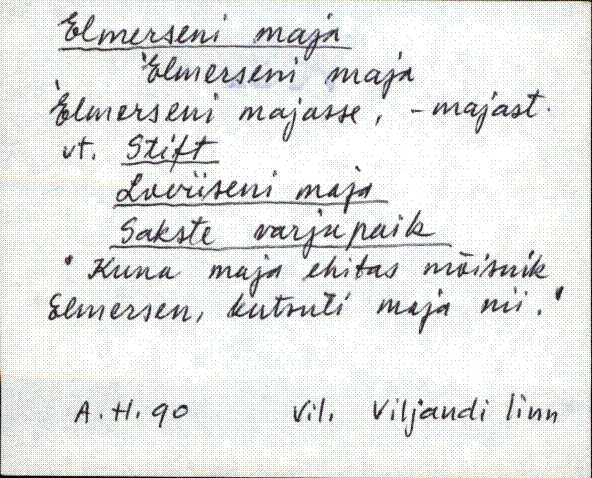 Elmerseni maja
'Elmerseni maja
'Elmerseni majasse, -majast.
vt. Stift
Loviiseni maja
Sakste varjupaik
' Kuna maja ehitas mõisnik
Elmersen, kutsuti maja nii.'
A.H. 90 Vil. Viljandi linn